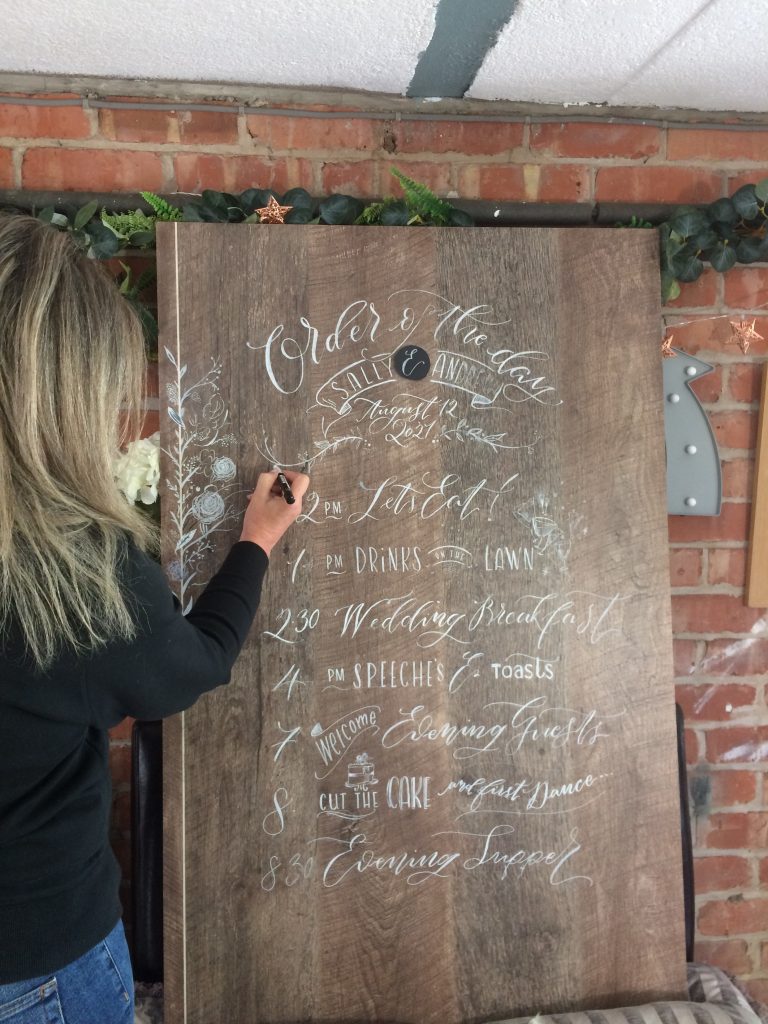 Order of the day
SALLY & ANDREW
August 12
2021
2 PM Let's Eat!
1 PM DRINKS ON THE LAWN
2·30 Wedding Breakfast
4 PM SPEECHE'S & TOASTS
7 Welcome Evening Guests
8. CUT THE CAKE and first Dance...
8 30 Evening Supper